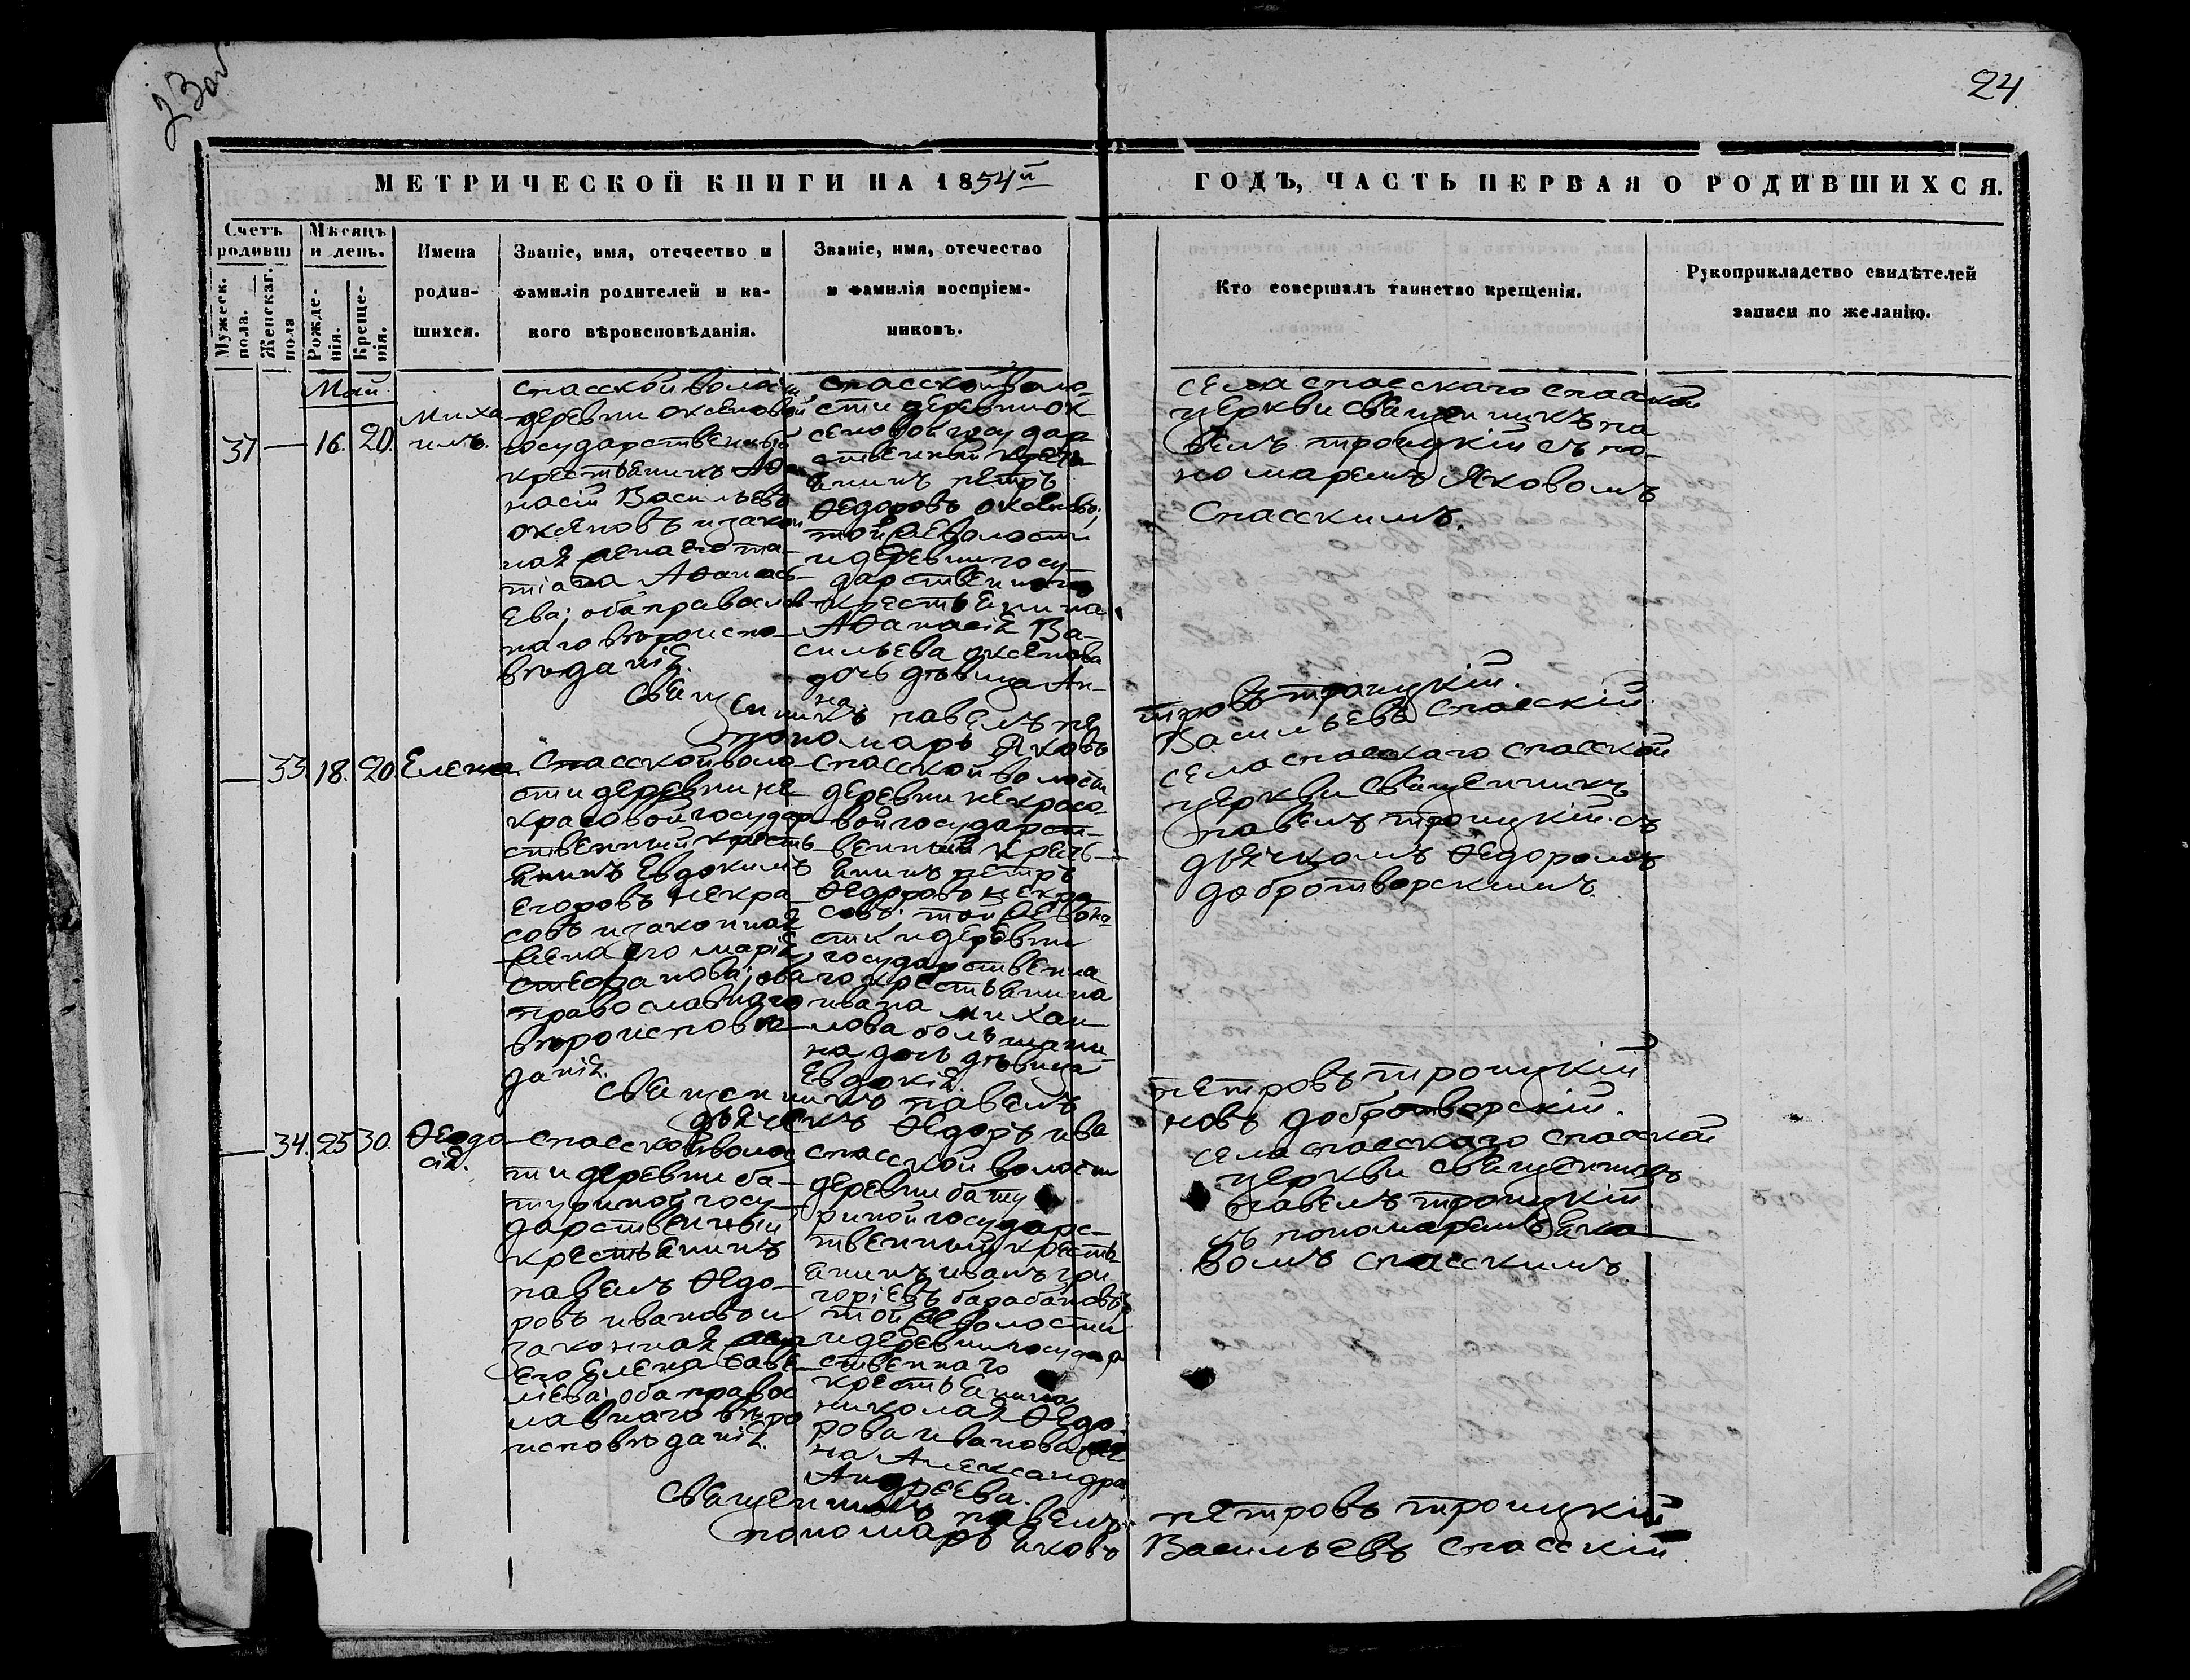 23об
24.
МЕТРИЧЕСКОЙ КНИГИ НА 1854й
ГОДЪ, ЧАСТЬ ПЕРВАЯ О РОДИВШИХСЯ.
Счетъ
родивш
Мужеск.
пола.
Женскаг.
пола
Мѣсяцъ
и день.
Рожде-
нія.
Креще-
нія.
Имена
родив-
шихся.
Званіе, имя, отечество и
фамилія родителей и ка-
кого вѣроисповѣданія.
Званіе, имя, отечество
и фамилія воспріем-
никовъ.
Кто совершалъ таинство крещенія.
Рукоприкладство свидѣтелей
записи по желанію.
Май
37 — 16. 20.
Миха
илъ.
спасской воло
деревни оксеновой
государственный
крестьянинъ Аѳа
насій Васильевъ
оксеновъ и закон
ная жена его та-
тіана Аѳанась-
ева; оба православ
наго вѣроиспо-
вѣданія.
спасской воло
сти деревни ок
сеновой государ
ственный кресть
янинъ петръ
Ѳедоровъ оксеновъ;
той же волости
и деревни госу
дарственнаго
крестьянина
Аѳанасія Ва-
сильева оксенова
дочь дѣвица Ан-
на
села спасскаго спасской
церкви священникъ па
велъ троицкій съ по-
номаремъ Яковомъ
Спасскимъ.
священникъ павелъ пе
тровъ троицкій.
пономарь Яковъ
Васильевъ спасскій
— 33. 18. 20
Елена
Спасской воло
сти деревни не
красовой государ
ственный кресть
янинъ Евдокимъ
егоровъ некра
совъ и законная
жена его марія
стефанова; оба
православнаго
вѣроисповѣ
данія.
спасской волости
деревни некрасо
вой государст-
венный кресть
янинъ петръ
Ѳедоровъ некра
совъ; той же воло
сти и деревни
государственна
го крестьянина
ивана михаи
лова большани
на дочь дѣвица
Евдокія.
села спасскаго спасской
церкви священникъ
павелъ троицкій съ
дьячкомъ Ѳедоромъ
добротворскимъ.
священникъ павелъ
петровъ троицкій
дьячекъ Ѳедоръ ива
новъ добротворскій.
— 34. 25 30.
Ѳеодо
сія.
спасской воло
ти деревни ба-
туриной госу
дарственный
крестьянинъ
павелъ Ѳедо-
ровъ ивановъ и
законная жена
его Елена саве
лiева; оба правос
лавнаго вѣро
исповѣданія.
спасской волости
деревни бату
риной государс-
твенный кресть
янинъ иванъ гри
горіевъ барабановъ;
той же волости
и деревни государ
ственнаго
крестьянина
николая Ѳедо
рова иванова же
на Александра
Андреева.
села спасскаго спасской
церкви священникъ
павелъ троицкій
съ пономаремъ яко
вомъ спасскимъ
священникъ павелъ
петровъ троицкій
пономарь яковъ
Васильевъ спасскій.